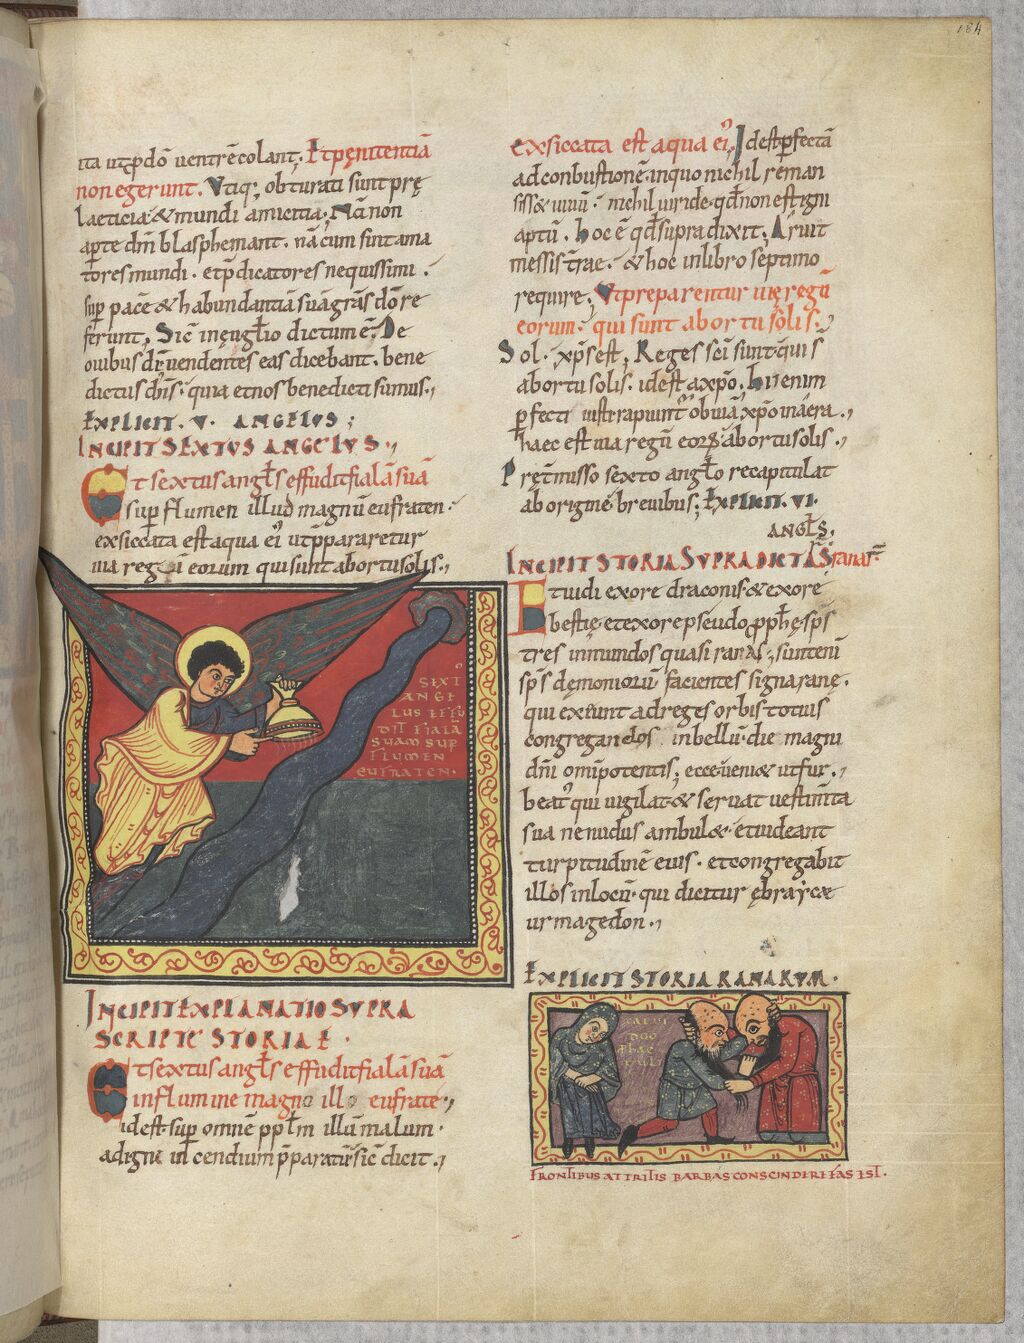 184
ita ut p̄ dō uentrē colant; Et pęnitentiā
non egerunt. Vtiq; obturati sunt prę
laeticia & mundi amicitia; Nā non
aperte dm̄ blasphemant. nā cum sint ama
tores mundi. et p̄dicatores nequissimi.
sup pacē & habundantiā suā grās dō re
ferunt, Sic̄ in ęuglio dictum ē; De
ouibus dr̄ uendentes eas dicebant. bene
dictus dn̄s. quia et nos benedicti sumus,
EXPLICIT. V. ANGELVS;
INCIPIT SEXTVS ANGELVS;
Et sextus angls effudit fialā suā
sup flumen illud magnū eufraten.
exsiccata est aqua ei' ut p̄pararetur
uia regū eorum qui sunt ab ortu solis.,
SEXT'
ANGE
LUS EFFU
DIT FIALĀ
SUAM SUP
FLUMEN
EUFRATEN.
INCIPIT EXPLANATIO SVPRA
SCRIPTE STORIAE.
Et sextus angls effudit fialā suā
in flumine magno illo eufrate;
id est. sup omnē pplm̄ illū malum.
ad igni incendium p̄paratū sic̄ dicit.,
exsiccata est aqua ei', Id est pfectā
ad conbustionē. in quo nichil reman
siss& uiuū. nichil uiride. qđ non est igni
aptū. hoc ē qđ supra dixit; Aruit
messis trae. & hoc in libro septimo
require; Vt preparentur uię regū
eorum. qui sunt ab ortu solis.;
Sol. xps est, Reges sci sunt qui s
ab ortu solis. id est a xpo. hii enim
pfecti iusti rapiunt' obuiā xpo in aera.,
haec est uia regū eorꝝ ab ortu solis.,
Pręt̄misso sexto anglo recapitulat
ab origine breuibus; EXPLICIT. VI.
ANGLS.
INCIPIT STORIA SVPRA DICTAS ranar̄
Et uidi ex ore draconis. & ex ore
bestię. et ex ore pseudo pphę. sps
tres inmundos quasi ranas; sunt enī
sps dęmoniorū facientes signa ranę.
qui exeunt ad reges orbis totius
congregandos in bellū. die magni
dn̄i omipotentis; ecce ueni& ut fur.,
beat' qui uigilat & seruat uestimīta
sua ne nudus ambul&. et uideant
turpitudinē eius. et congregabit
illos in locū. qui dicitur ębraycæ
urmagedon.,
EXPLICIT STORIA RANARVM.
DUO
FRONTIBUS ATTRITIS BARBAS CONSCINDERE FAS EST.